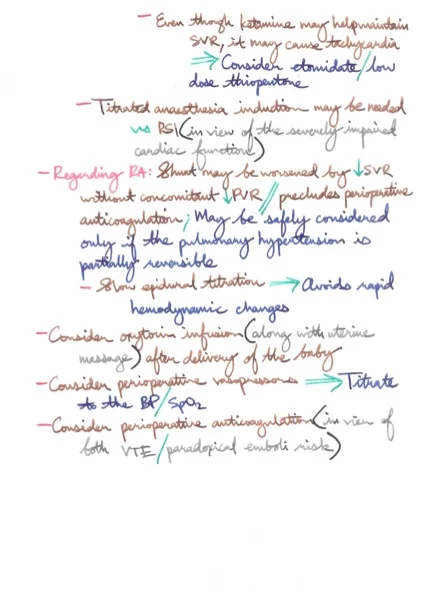 - Even though ketamine may help maintain
SVR, it may cause tachycardia
⇒ Consider etomidate/low
dose thiopentone
- Titrated anaesthesia induction may be needed
vs RSI (in view of the severely impaired
cardiac function)
- Regarding RA: Shunt may be worsened by ↓SVR
without concomitant ↓PVR // precludes perioperative
anticoagulation; May be safely considered
only if the pulmonary hypertension is
partially reversible
- Slow epidural titration → Avoids rapid
hemodynamic changes
- Consider oxytocin infusion (along with uterine
message) after delivery of the baby
- Consider perioperative vasopressors ⇒ Titrate
to the BP/SpO2
- Consider perioperative anticoagulation (in view of
both VTE/paradopical emboli risk)